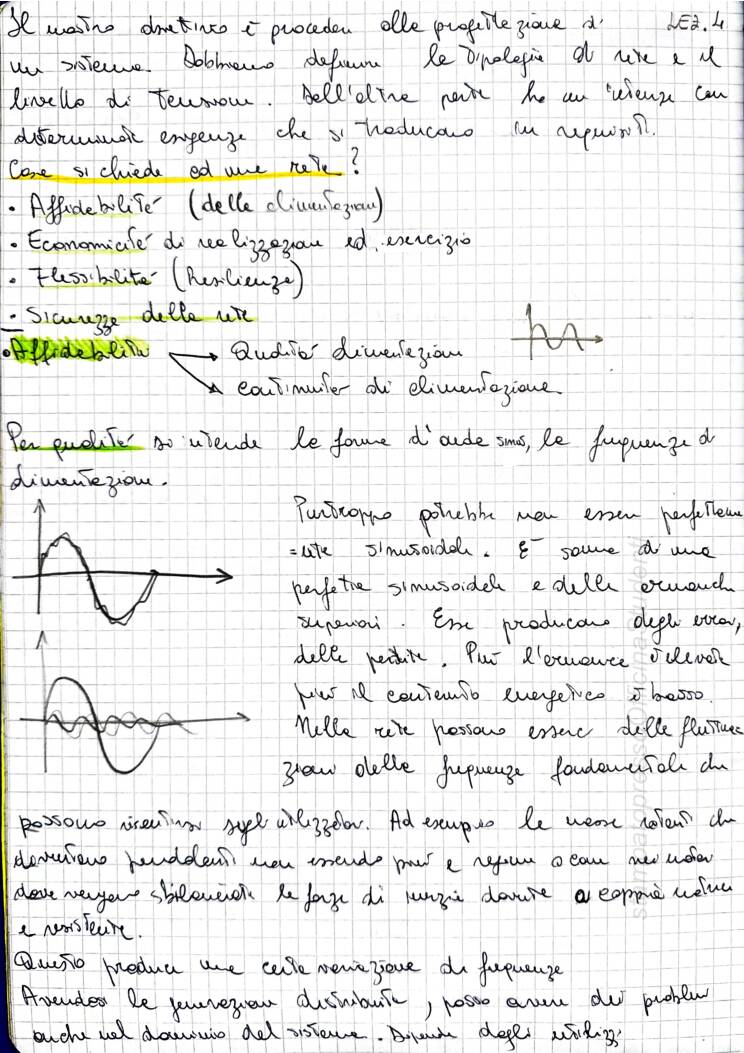 Il nostro obiettivo è procedere alla progettazione di LEZ.4
un sistema. Dobbiamo definire le tipologie di rete e il
livello di tensione. Dall'altra parte ho un'utenza con
determinate esigenze che si traducono in requisiti.
Cosa si chiede ad una rete?
• Affidabilità (della alimentazione)
• Economicità di realizzazione ed esercizio
• Flessibilità (Resilienza)
• Sicurezza della rete
• Affidabilità Qualità alimentazione
continuità di alimentazione.
Per qualità si intende la forma d'onda sinus, la frequenza di
alimentazione.
Purtroppo potrebbe non essere perfettame
=nte sinusoidale. È somma di una
perfetta sinusoidale e delle armoniche
superiori. Esse producono degli errori,
delle perdite. Più l'armonica è elevata
più il contenuto energetico è basso.
Nella rete possono esserci delle fluttua
zioni della frequenza fondamentale che
possono risentirsi sugli utilizzatori. Ad esempio le masse rotanti che
diventano pendolanti non essendo più a regime o come nei motori
dove vengono sbilanciate le forze di inerzia dovute a coppia motrice
e resistente.
Questo produce una certa variazione di frequenza
Avendosi la generazione distribuita, posso avere dei problemi
anche nel dominio del sistema. Dipende dagli utilizzi